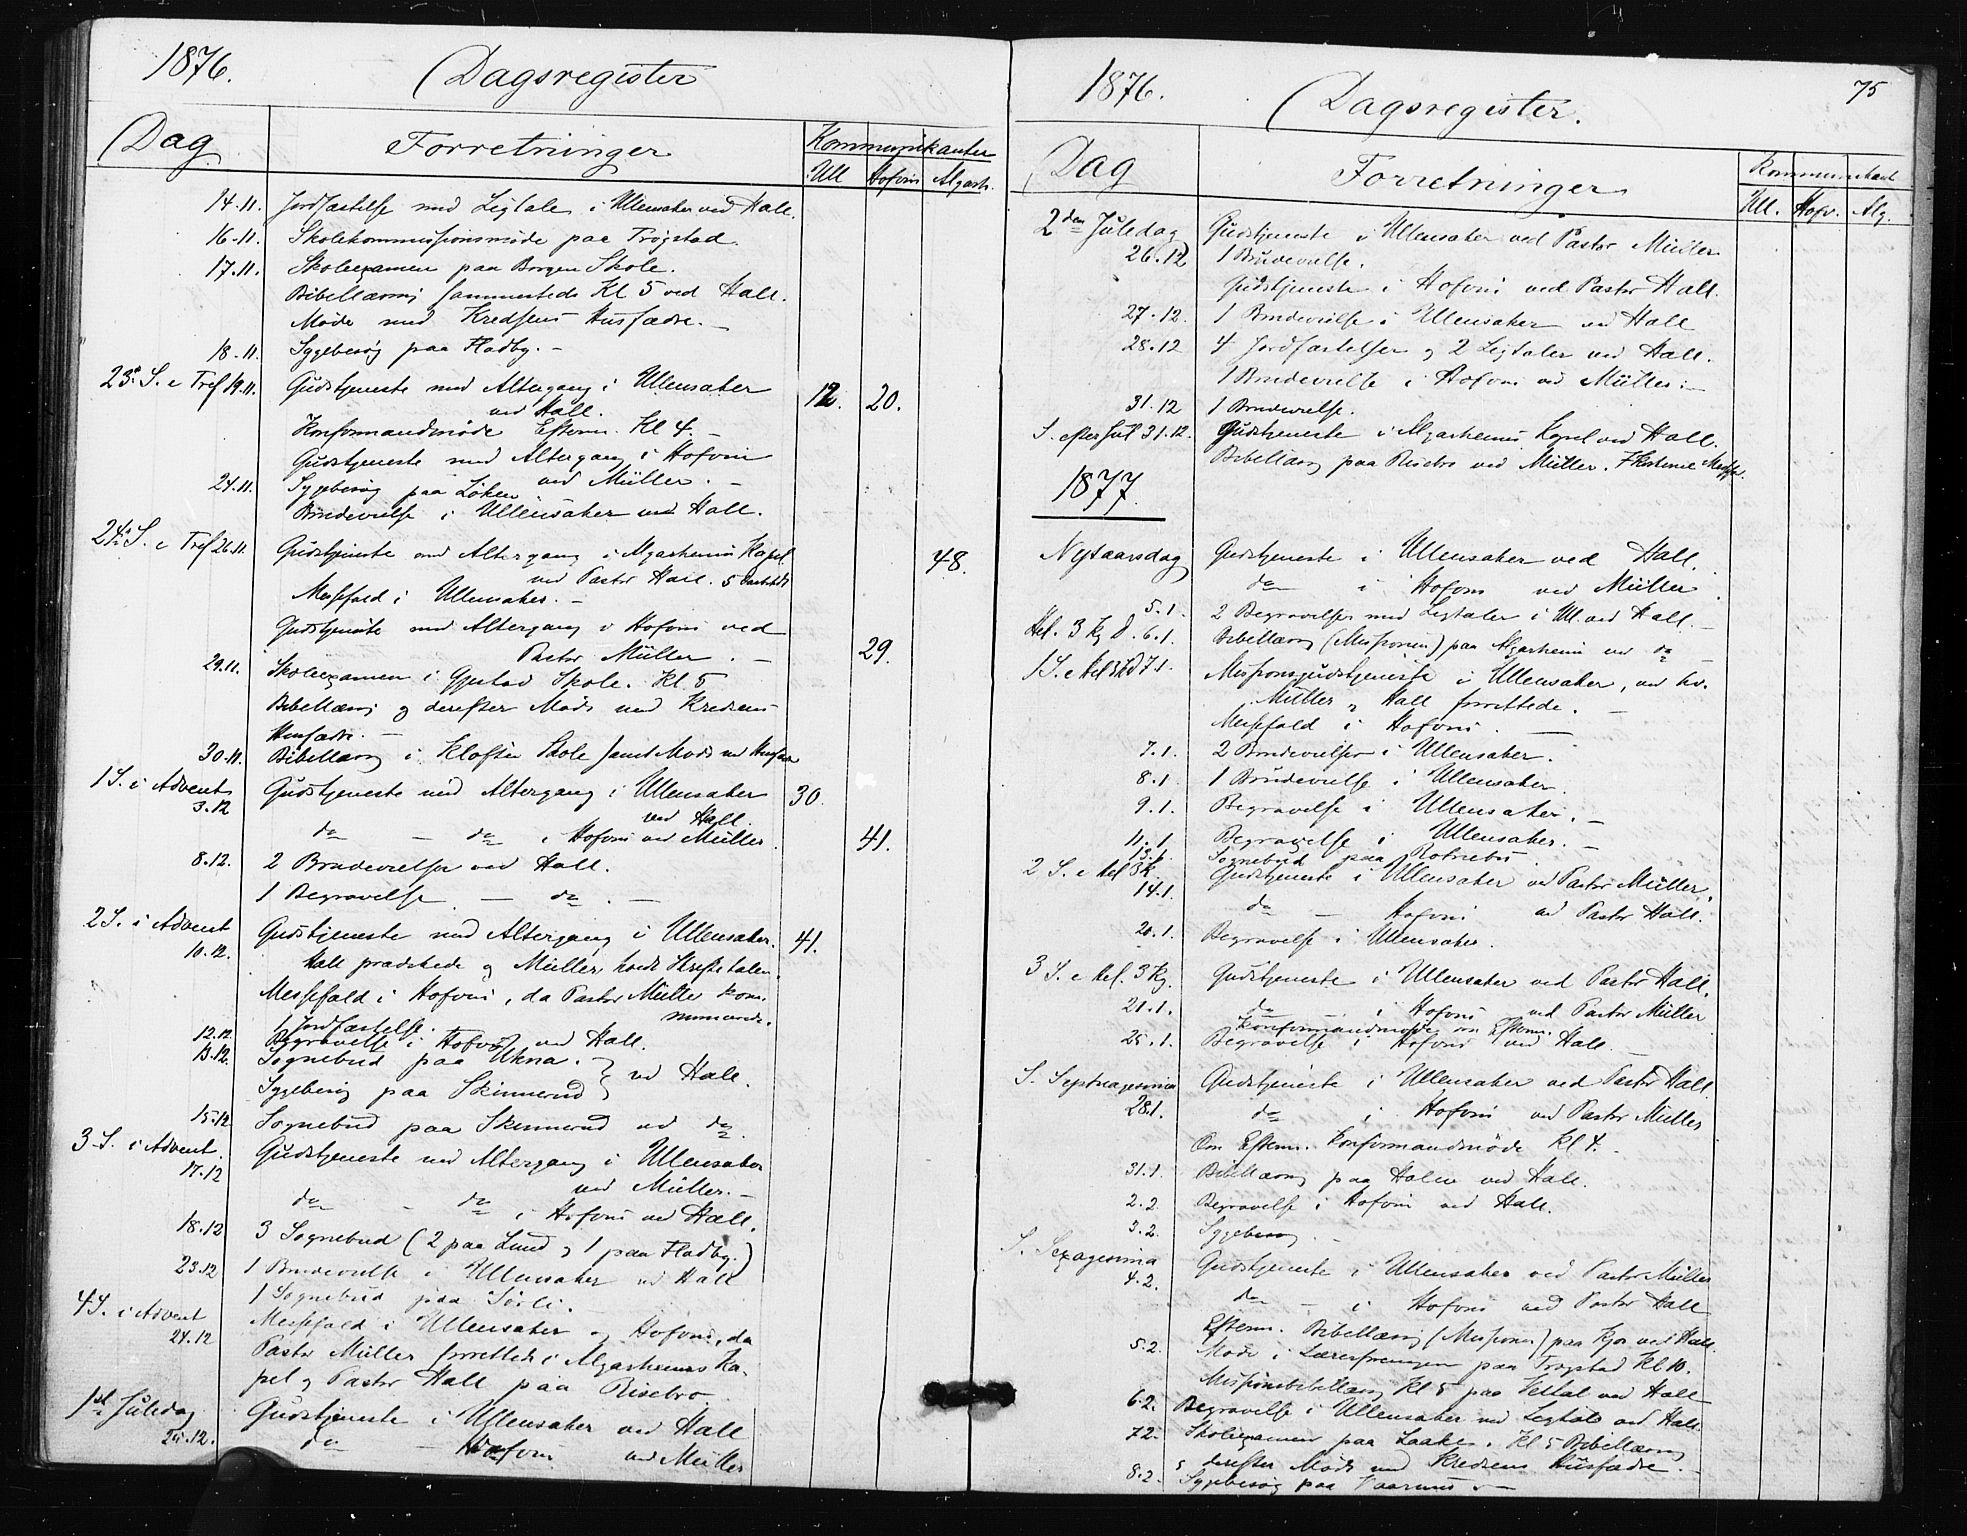 1876.
Dagsregister
Dag
Forretninger
Kommunikanter
Ull Hofvin Algarh.
14-11. Jordfæstelse med Ligtale i Ullensaker ved Hall.
16-11. Skolekommissionsmøde paa Trøgstad.
17-11. Skoleexamen paa Borgen Skole.
Bibellæsng sammesteds Kl 5 ved Hall.
Møde med Kredsens Husfædre. -
18-11. Sygebesøg paa Fladby. -
23de S. e Tref 19.11. Gudstjeneste med Altergang i Ullensaker 12. 20.
ved Hall.
Konfirmandmøde Efterm. Kl 4 -
Gudstjeneste med Altergang i Hofvin
ved Müller. -
24.11. Sygebesøg paa Løken
Brudevielse i Ullensaker ved Hall.
24de S. e Tref 26.11. Gudstjeneste med Altergang i Algarheims Kapel 48.
ved Pastor Hall.
Messefald i Ullensaker. -
Gudstjeneste med Altergang i Hofvin ved
Pastor Müller. - 29.
29.11. Skoleexamen i Gjestad Skole. Kl. 5
Bibellæsng og derefter Møde med Kredsens
Husfædre. -
30.11. Bibellæsng i Kløften Skole samt Møde med Husfædre
1 S. i Advent Gudstjeneste med Altergang i Ullensaker 30.
3.12 ved Hall.
do - do i Hofvin ved Müller. 41.
8.12. 2 Brudevielser ved Hall.
1 Begravelse - do. -
2 S. i Advent Gudstjeneste med Altergang i Ullensaker. 41.
10.12. Hall prædikede og Müller holdt Skriftetalen.
Messefald i Hofvin, da Pastor Müller kom-
municerede.
12.12. 1 Jordfæstelse.
Begravelse i Hofvin ved Hall.
13.12. Sognebud paa Ukna.
Sygebesøg paa Skinnerud } ved Hall.
15.12 Sognebud paa Skinnerud ved do.
3 S. i Advent. Gudstjeneste med Altergang i Ullensaker
17.12 ved Müller. -
do - do i Hofvin ved Hall.
18.12 3 Sognebud (2 paa Lund og 1 paa Fladby.)
23.12 1 Brudevielse i Ullensaker ved Hall
1 Sognebud paa Sørli.
4 S. i Advent Messefald i Ullensaker og Hofvin, da
24.12 Pastor Müller forrettede i Algarheims Ka-
pel og Pastor Hall paa Risebro
1ste Juledag Gudstjeneste i Ullensaker ved Hall
25.12. do - Hofvin ved Müller
1876.
Dagsregister.
75
Dag
Forretninger
Kommunikant
Ull. Hofv. Alg.
2den Juledag Gudstjeneste i Ullensaker ved Pastor Müller
26.12 1 Brudevielse.
Gudstjeneste i Hofvin ved Pastor Hall.
27-12. 1 Brudevielse i Ullensaker ved Hall
28.12 4 Jordfæstelser og 2 Ligtaler ved Hall.
1 Brudevielse i Hofvin ved Müller. -
31.12 1 Brudevielse.
S. efter Jul 31.12. Gudstjeneste i Algarheims Kapel ved Hall.
Bibellæsng paa Risebro ved Müller.
1877.
Nytaarsdag Gudstjeneste i Ullensaker ved Hall.
do i Hofvin ved Müller.
5.1. 2 Begravelser med Ligtaler i Ull. ved Hall. -
Hel. 3 Kg D. 6.1. Bibellæsng (Missionen) paa Algarheim ved do -
1 S. e Hel 3 Kd 7.1. Missionsgudstjeneste i Ullensaker, ved hv.
Müller og Hall forrettede. -
Messefald i Hofvin. -
7.1. 2 Brudevielser i Ullensaker.
8.1. 1 Brudevielse i Ullensaker.
9.1. Begravelse i Ullensaker. -
11.1. Begravelse i Ullensaker. -
13.1. Sognebud paa
2 S. e Hel 3 K. Gudstjeneste i Ullensaker ved Pastor Müller,
14.1. do - Hofvin ved Pastor Hall.
20.1. Begravelse i Ullensaker.
3 S. e Hel. 3 Kg. Gudstjeneste i Ullensaker ved Pastor Hall.
21.1. do - i Hofvin ved Pastor Müller
Konfirmandmøde om Efterm.
25.1. Begravelse i Hofvin ved Hall. -
S. Septuagesima Gudstjeneste i Ullensaker ved Pastor Hall.
28.1. do i Hofvin ved Pastor Müller
Om Efterm. Konfirmandmøde Kl 4. -
31.1. Bibellæsng paa Holm ved Hall.
2.2. Begravelse i Hofvin ved Hall.
3.2. Sygebesøg. -
S. Sexagesima Gudstjeneste i Ullensaker ved Pastor Müller
4.2. do - i Hofvin ved Pastor Hall
Efterm. Bibellæsng (Missionen) paa Kjos ved Hall.
5.2. Møde i Lærerforeningen paa Trøgstad Kl 10.
Missionsbibellæsng Kl 5 paa Veltal ved Hall
6.2. Begravelse i Ullensaker med Ligtale ved Hall.
7.2. Skoleexamen paa Laake. Kl 5 Bibellæsng
og derefter Møde med Kredsens Husfædre. -
8.2. Sygebesøg paa